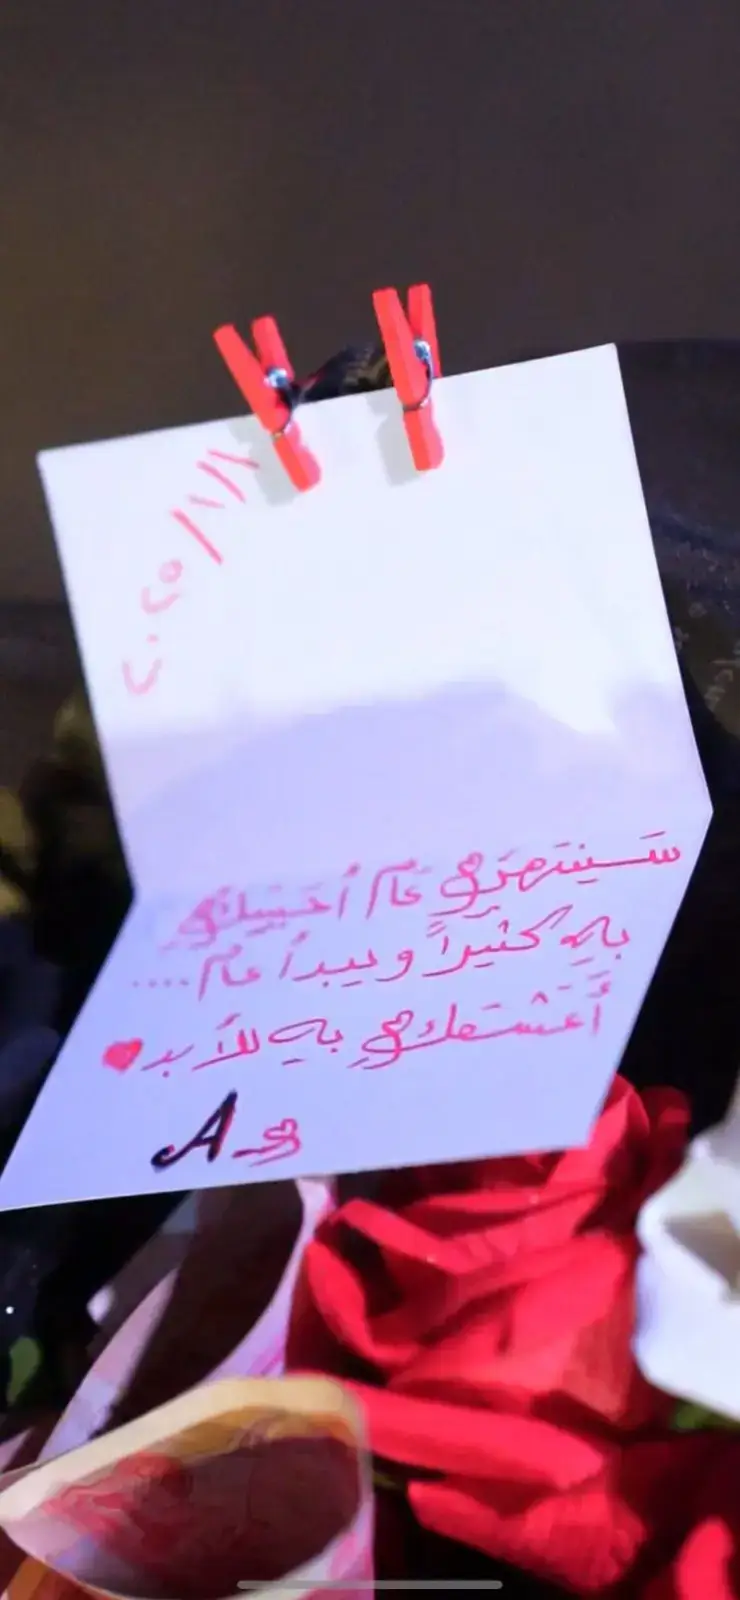 ٢٠٢٥/١/١
سَينتهي عام أحببتكِ
بهِ كثيراً ويبدأ عام ....
أَعشقكِ بهِ للأبد ♥
A